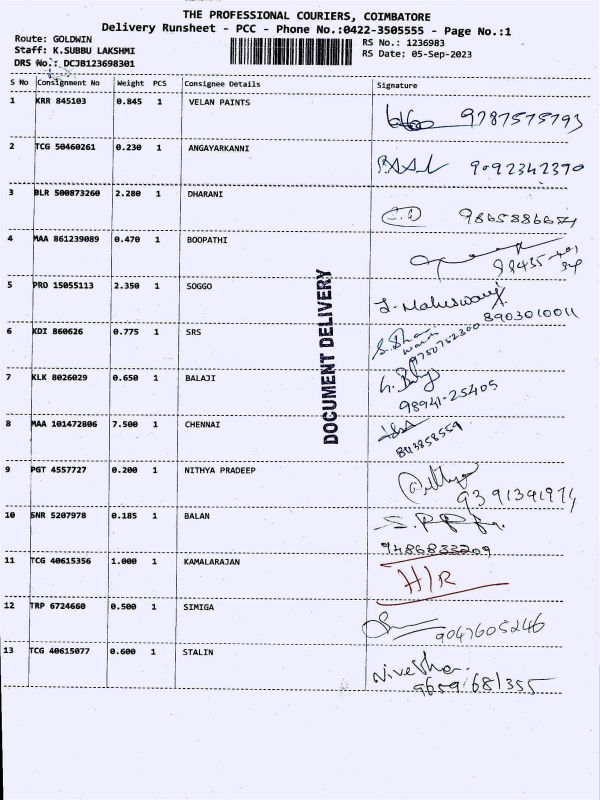 THE PROFESSIONAL COURIERS, COIMBATORE
Delivery Runsheet - PCC - Phone No.:0422-3505555 - Page No.:1
Route: GOLDWIN
RS No.: 1236983
Staff: K.SUBBU LAKSHMI
RS Date: 05-Sep-2023
DRS No.: DCJB123698301
S No Consignment No Weight PCS Consignee Details Signature
1 KRR 845103 0.845 1 VELAN PAINTS
9787575793
2 TCG 50460261 0.230 1 ANGAYARKANNI
9092342370
3 BLR 500873260 2.280 1 DHARANI
4 MAA 861239089 0.470 1 BOOPATHI
5 PRO 15055113 2.350 1 SOGGO
8903010011
6 KDI 860626 0.775 1 SRS
9750752300
7 KLK 8026029 0.650 1 BALAJI
98941-25405
8 MAA 101472806 7.500 1 CHENNAI
9 PGT 4557727 0.200 1 NITHYA PRADEEP
Nithya
9391391974
10 SNR 5207978 0.185 1 BALAN
9486833209
11 TCG 40615356 1.000 1 KAMALARAJAN
H/R
12 TRP 6724660 0.500 1 SIMIGA
9047605246
13 TCG 40615077 0.600 1 STALIN
Nivetha.
9659 681355
DOCUMENT DELIVERY